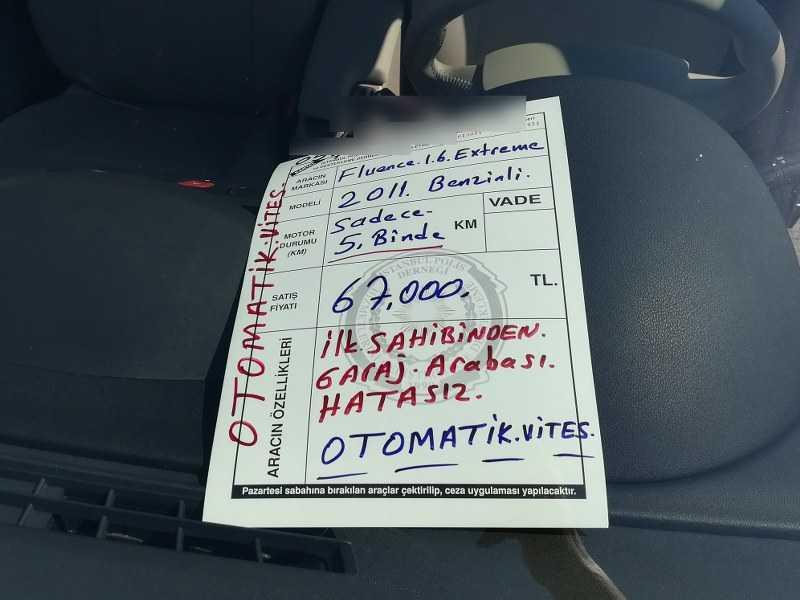 ARACIN MARKASI Fluence.1.6.Extreme
MODELİ 2011. Benzinli.
MOTOR DURUMU (KM) Sadece. 5, Binde KM
VADE
SATIŞ FİYATI 67,000. TL.
İSTANBUL POLİS
DERNEĞİ
ARACIN ÖZELLİKLERİ
İLK SAHİBİNDEN.
GARAJ. Arabası.
HATASIZ.
OTOMATİK.VİTES.
OTOMATİK.VİTES.
Pazartesi sabahına bırakılan araçlar çektirilip, ceza uygulaması yapılacaktır.